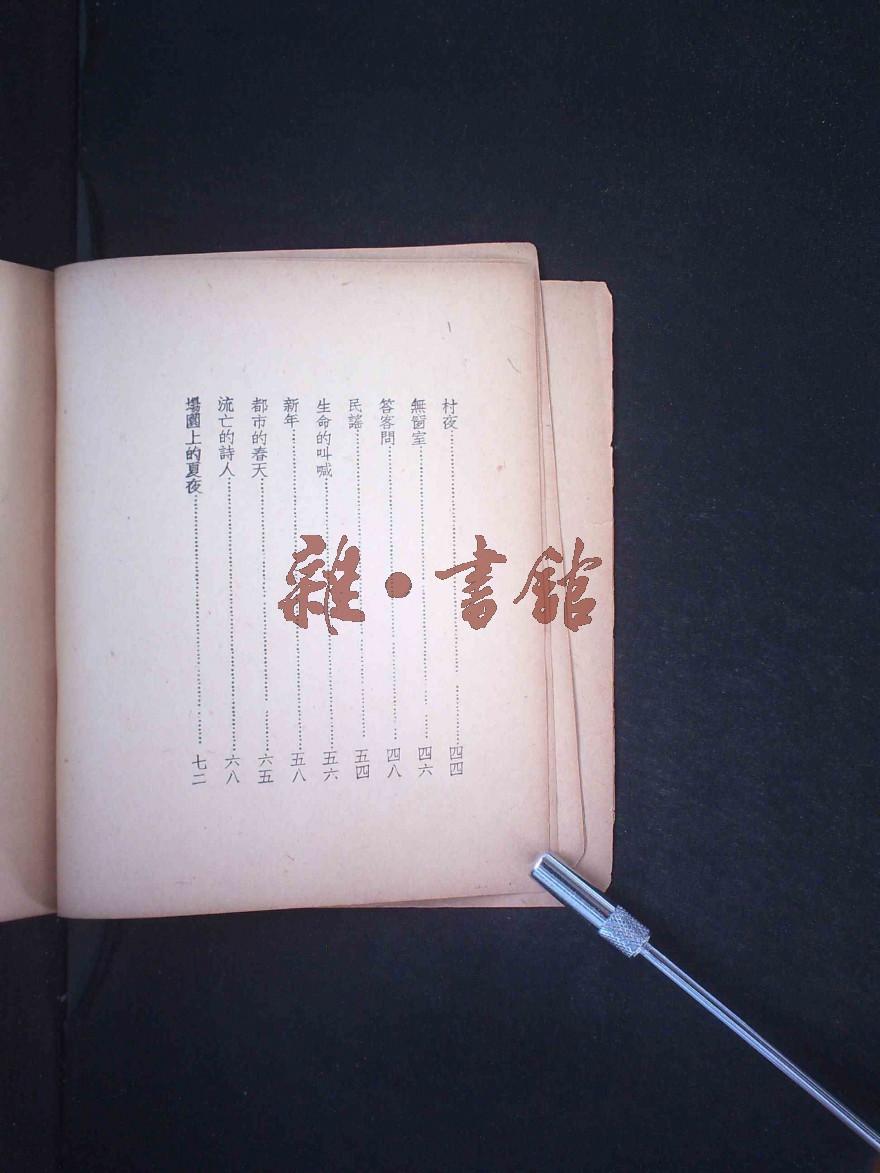 村夜……四四
無窗室……四六
答客問……四八
民謠……五四
生命的叫喊……五六
新年……五八
都市的春天……六五
流亡的詩人……六八
場園上的夏夜……七二
雜·書館